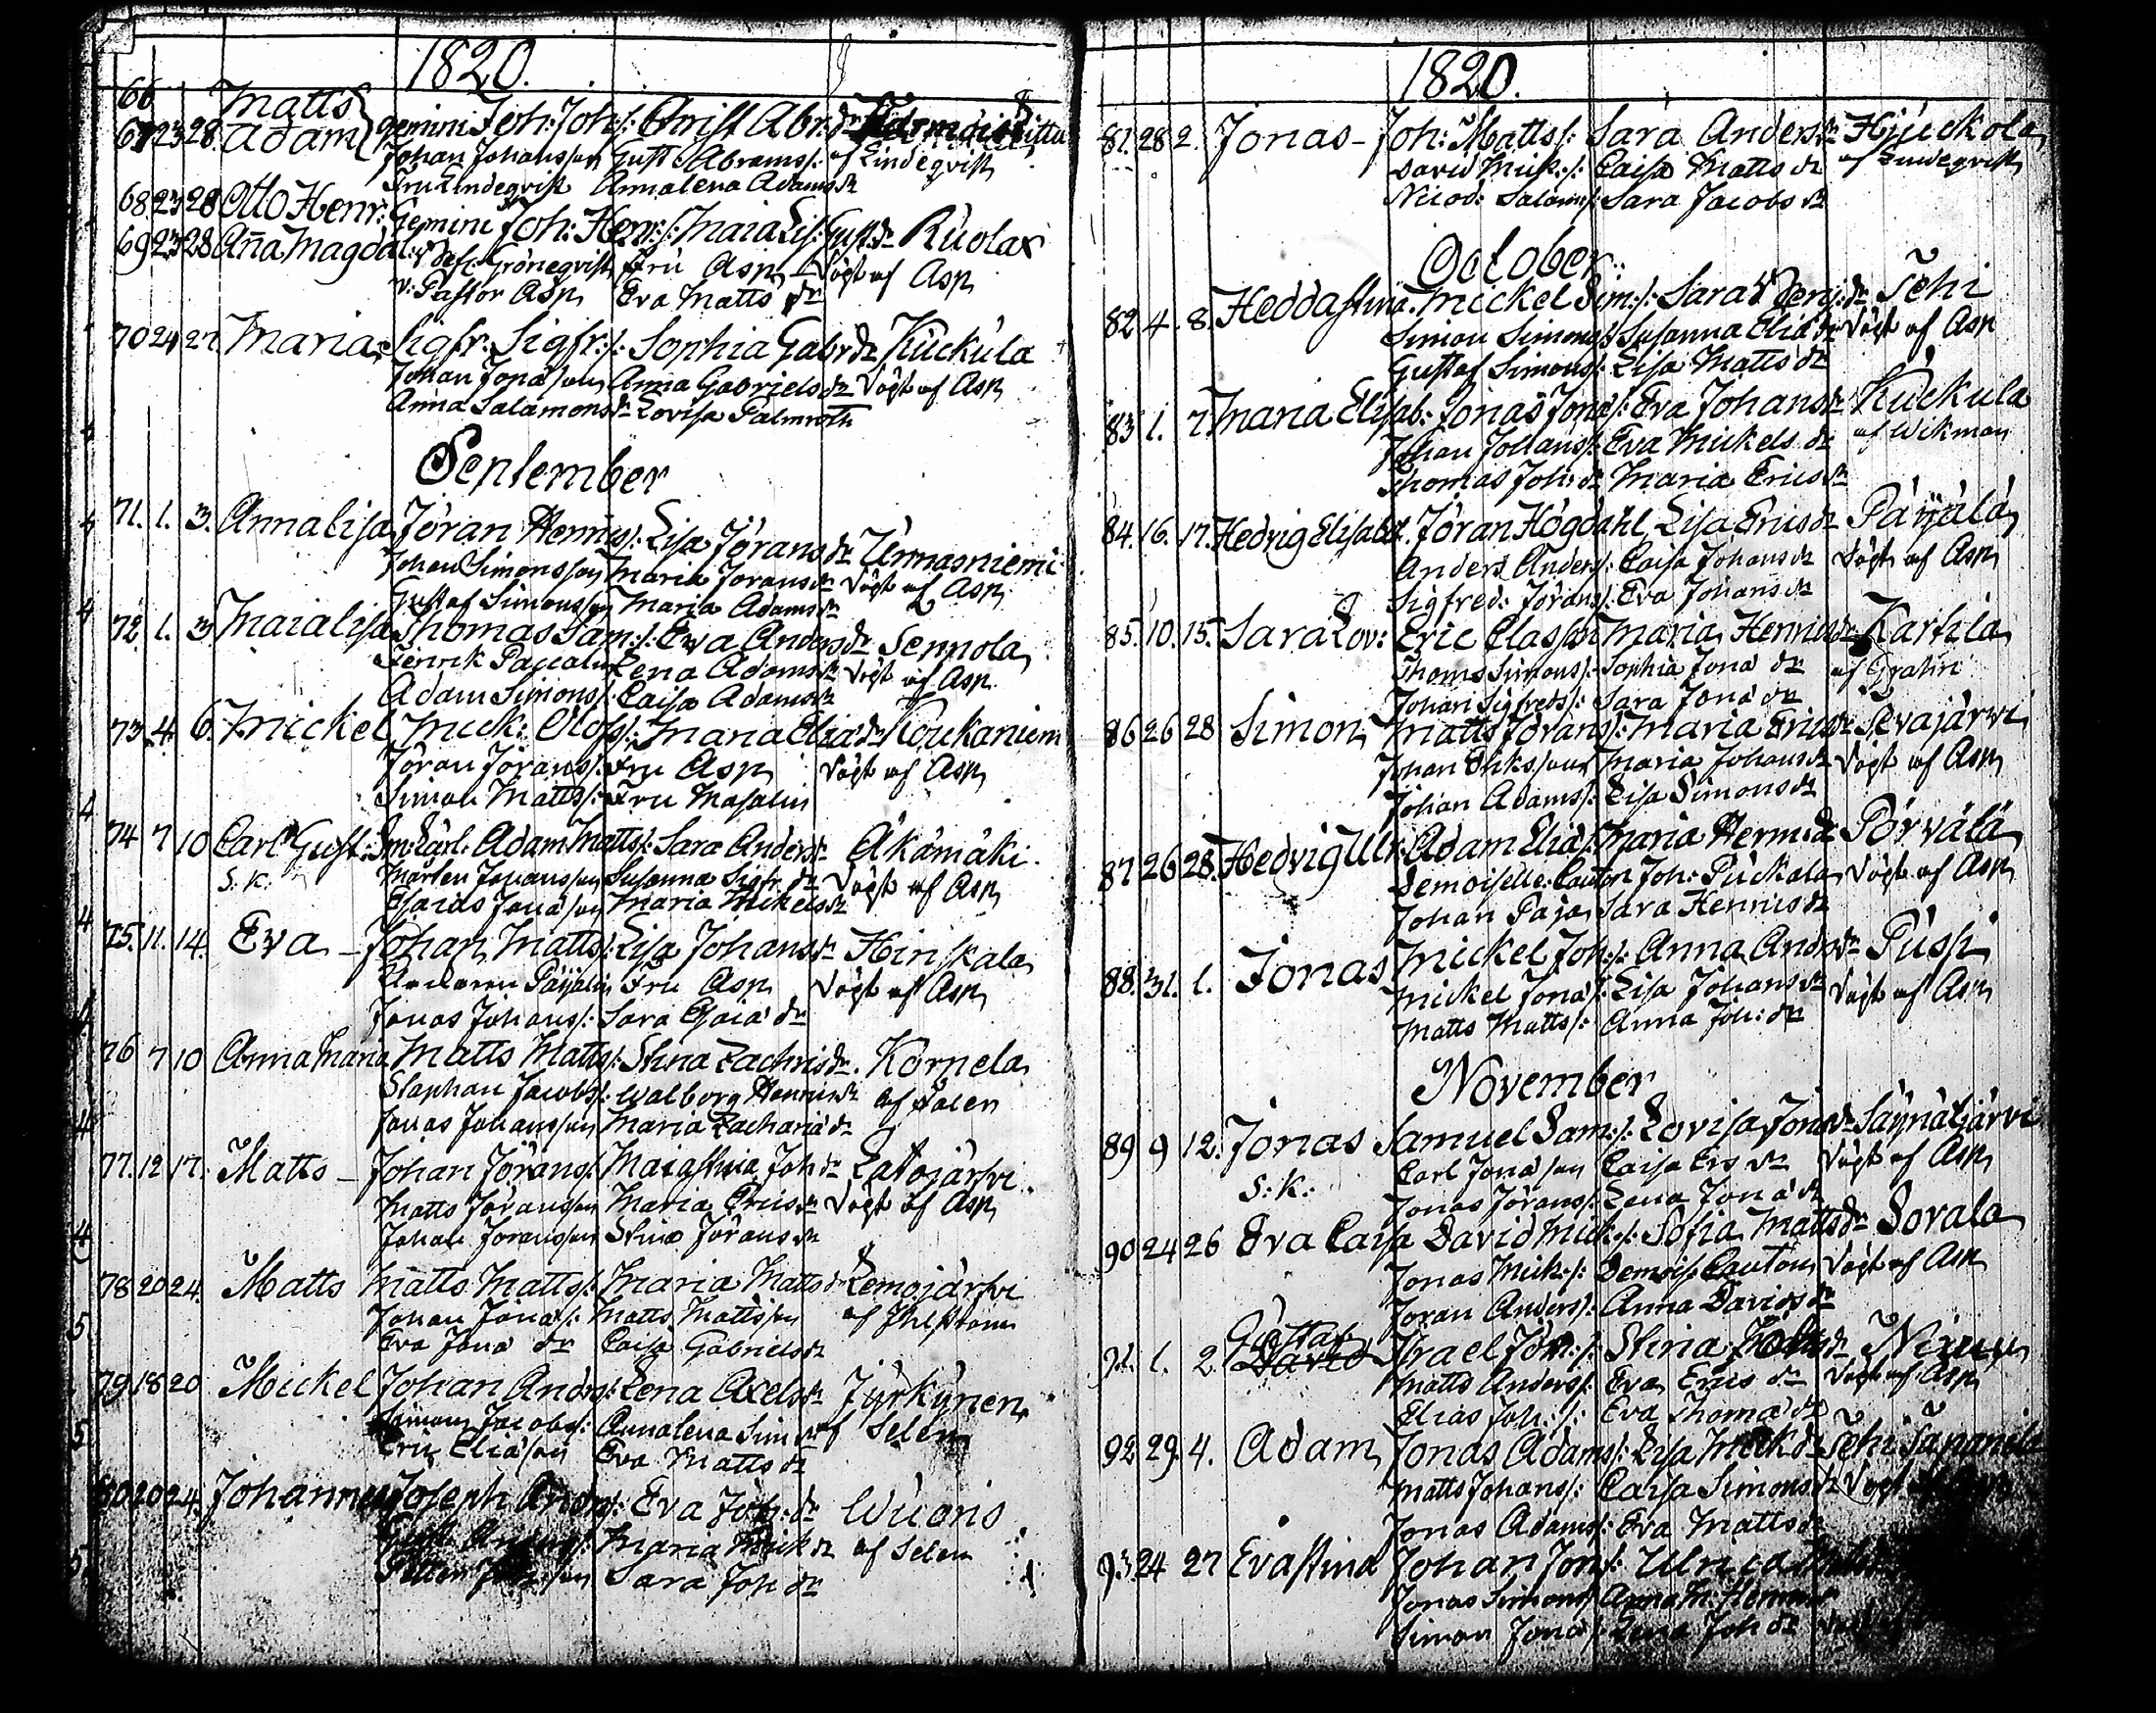 1820.
66 Matts
67 23 28. Adam gemini Joh: Joh s/: Christ Abr: dr
Johan Johansson Gust Abrams/: af Lindeqvist
Fru Lindeqvist Annalena Adams dr
68 23 28 Otto Henr: Gemini Joh: Henr:/: Maia Lis: Gust: dr Kuolax
69 23 28 Aña Magdal: Gröneqvist Fru Asp Vögt af Asp
v: Pastor Asp Eva Matts dr
70 24 27. Maria Sigfr: Sigfr:/: Sophia Gabr dr Kuckula
Johan Jona son Anna Gabriels dr Vögt af Asp
Anna Salamons dr Lovisa Palmroth
September
71. 1. 3. Annalisa Jöran Henrics/: Lisa Jörans dr Unnasniemi
Johan Simonsson Maria Jorans dr Vögt af Asp
Gustaf Simonsson Maria Adams dr
72 1. 3 Maialisa Thomas Sam:/: Eva Anders dr Seppola
Henrik Lena Adams dr Vögt af Asp.
Adam Simons/: Caisa Adams dr
73. 4. 6. Mickel Mick: Olofs/: Maria Elia dr Koukaniem
Jöran Jörans/: Fru Asp Vögt af Asp
Simon Matts/: Fru Masalin
74 7 10 Carl Gust: Adam Matts/: Sara Anders dr Äkämäki
s: k: Mårten Johansson Susanna Sigfr: dr Vögt af Asp
Esaias Jona son Maria Mickels dr
75. 11. 14. Eva - Johan Matts/: Lisa Johans dr Hinskala
Fru Asp Vögt af Asp
Jonas Johans/: Sara Esaiæ dr
76 7 10 Anna Maria Matts Matts/: Stina Zachris dr. Kornela
Staphan Jacobs/: Walborg Henrics dr af Salen
Jonas Johansson Maria Zacharia dr
77. 12 17. Matts - Johan Jörans/: Maiastina Joh dr Latojärfvi
Matts Jöransson Maria Erics dr Vögt af Asp
Johan Joransson Stina Jörans dr
78 20 24. Matts Matts Matts/: Maria Matts dr Lemojärfvi
Johan Jona/: Matts Mattsson
Eva Jona dr Caisa Gabriels dr
79 18 20 Mickel Johan Anders/: Lena Axels dr Jyrkynen
Simon Jacobs/: Annalena Sim dr af Selen
Eric Eliason Eva Matts dr
80 20 24. Johannes Joseph Anders/: Eva Joh: dr Wuoris
Maria Mick dr af Selen
Petter Sara Joh dr
1820.
81. 28 2. Jonas - Joh: Matts/: Sara Anders dr Hjuckola
David Mick:/: Caisa Matts dr af Lindeqvist
Nicod: Salom:/: Sara Jacobs dr
October
82 4. 8. Heddastina. Mickel Sim:/: Sara Benj: dr Tehi
Simon Simons/: Susanna Elia dr Vögt af Asp
Gustaf Simons/: Lisa Matts dr
83 1. 7. Maria Elisab: Jonas Jona/: Eva Johans dr Kuckula
Johan Johans/: Eva Mickels dr af Wikman
Thomas Joh: Maria Erics dr
84. 16. 17. Hedvig Elisabet. Jöran Högdahl Lisa Erics dr Päyälä
Anders Anders/: Caisa Johans dr Vögt af Asp
Sigfred: Jörans/: Eva Johans dr
85. 10. 15. Sara Lov: Eric Classon Maria Henrics dr Karhila
Thoms Simons/: Sophia Jona dr af Grahn
Johan Sigfreds/: Sara Jona dr
86 26 28 Simon Matts Jörans/: Maria Erics dr Sevajärvi
Johan Eriksson Maria Johans dr Vögt af Asp
Johan Adams/: Lisa Simons dr
87 26 28. Hedvig Ulr: Adam Elia/: Maria Herm: dr Pörvälä
Demoiselle: Cauton Joh: Puckala Vögt af Asp
Johan Paja Sara Henrics dr
88. 31. 1. Jonas Mickel Joh:/: Anna Anders dr Pusi
Mickel Jona/: Lisa Johans dr Vögt af Asp
Matts Matts/: Anna Joh: dr
November
89 9 12. Jonas Samuel Sam:/: Lovisa Jona dr Säynätjärvi
s: k: Carl Jona son Caisa Ers dr Vögt af Asp
Jonas Jörans/: Lena Jona dr
90 24 26 Eva Caisa David Mick:/: Sofia Matts dr Sorala
Jonas Mick:/: Demois: Cauton Vögt af Asp
Joran Anders/: Anna Davids dr
Gustaf
91. 1. 2. David Israel Jör:/: Stina dr
Matts Anders/: Eva Erics dr Vögt af Asp
Elias Joh:/: Eva Thoma dr
92 29. 4. Adam Jonas Adams/: Lisa Mick dr Tehi Tapanila
Matts Johans/: Caisa Simons dr Vögt
Jonas Adams/: Eva Matts dr
93 24 27 Evastina Johan Jon/: Ulrica
Jonas Simons/: Anna M:
Simon Jona/: Lena Joh dr